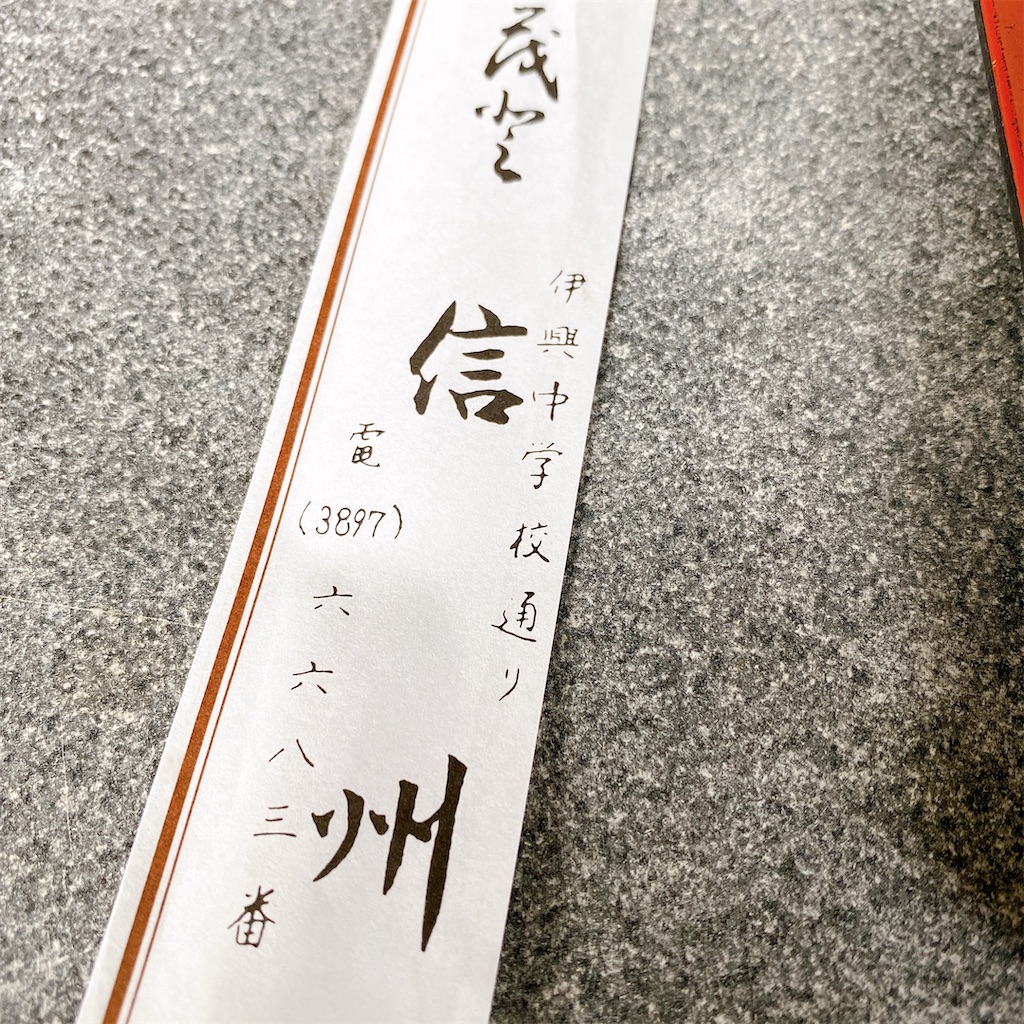 茂登
伊興中学校通り
信州
電(3897)六六八三番